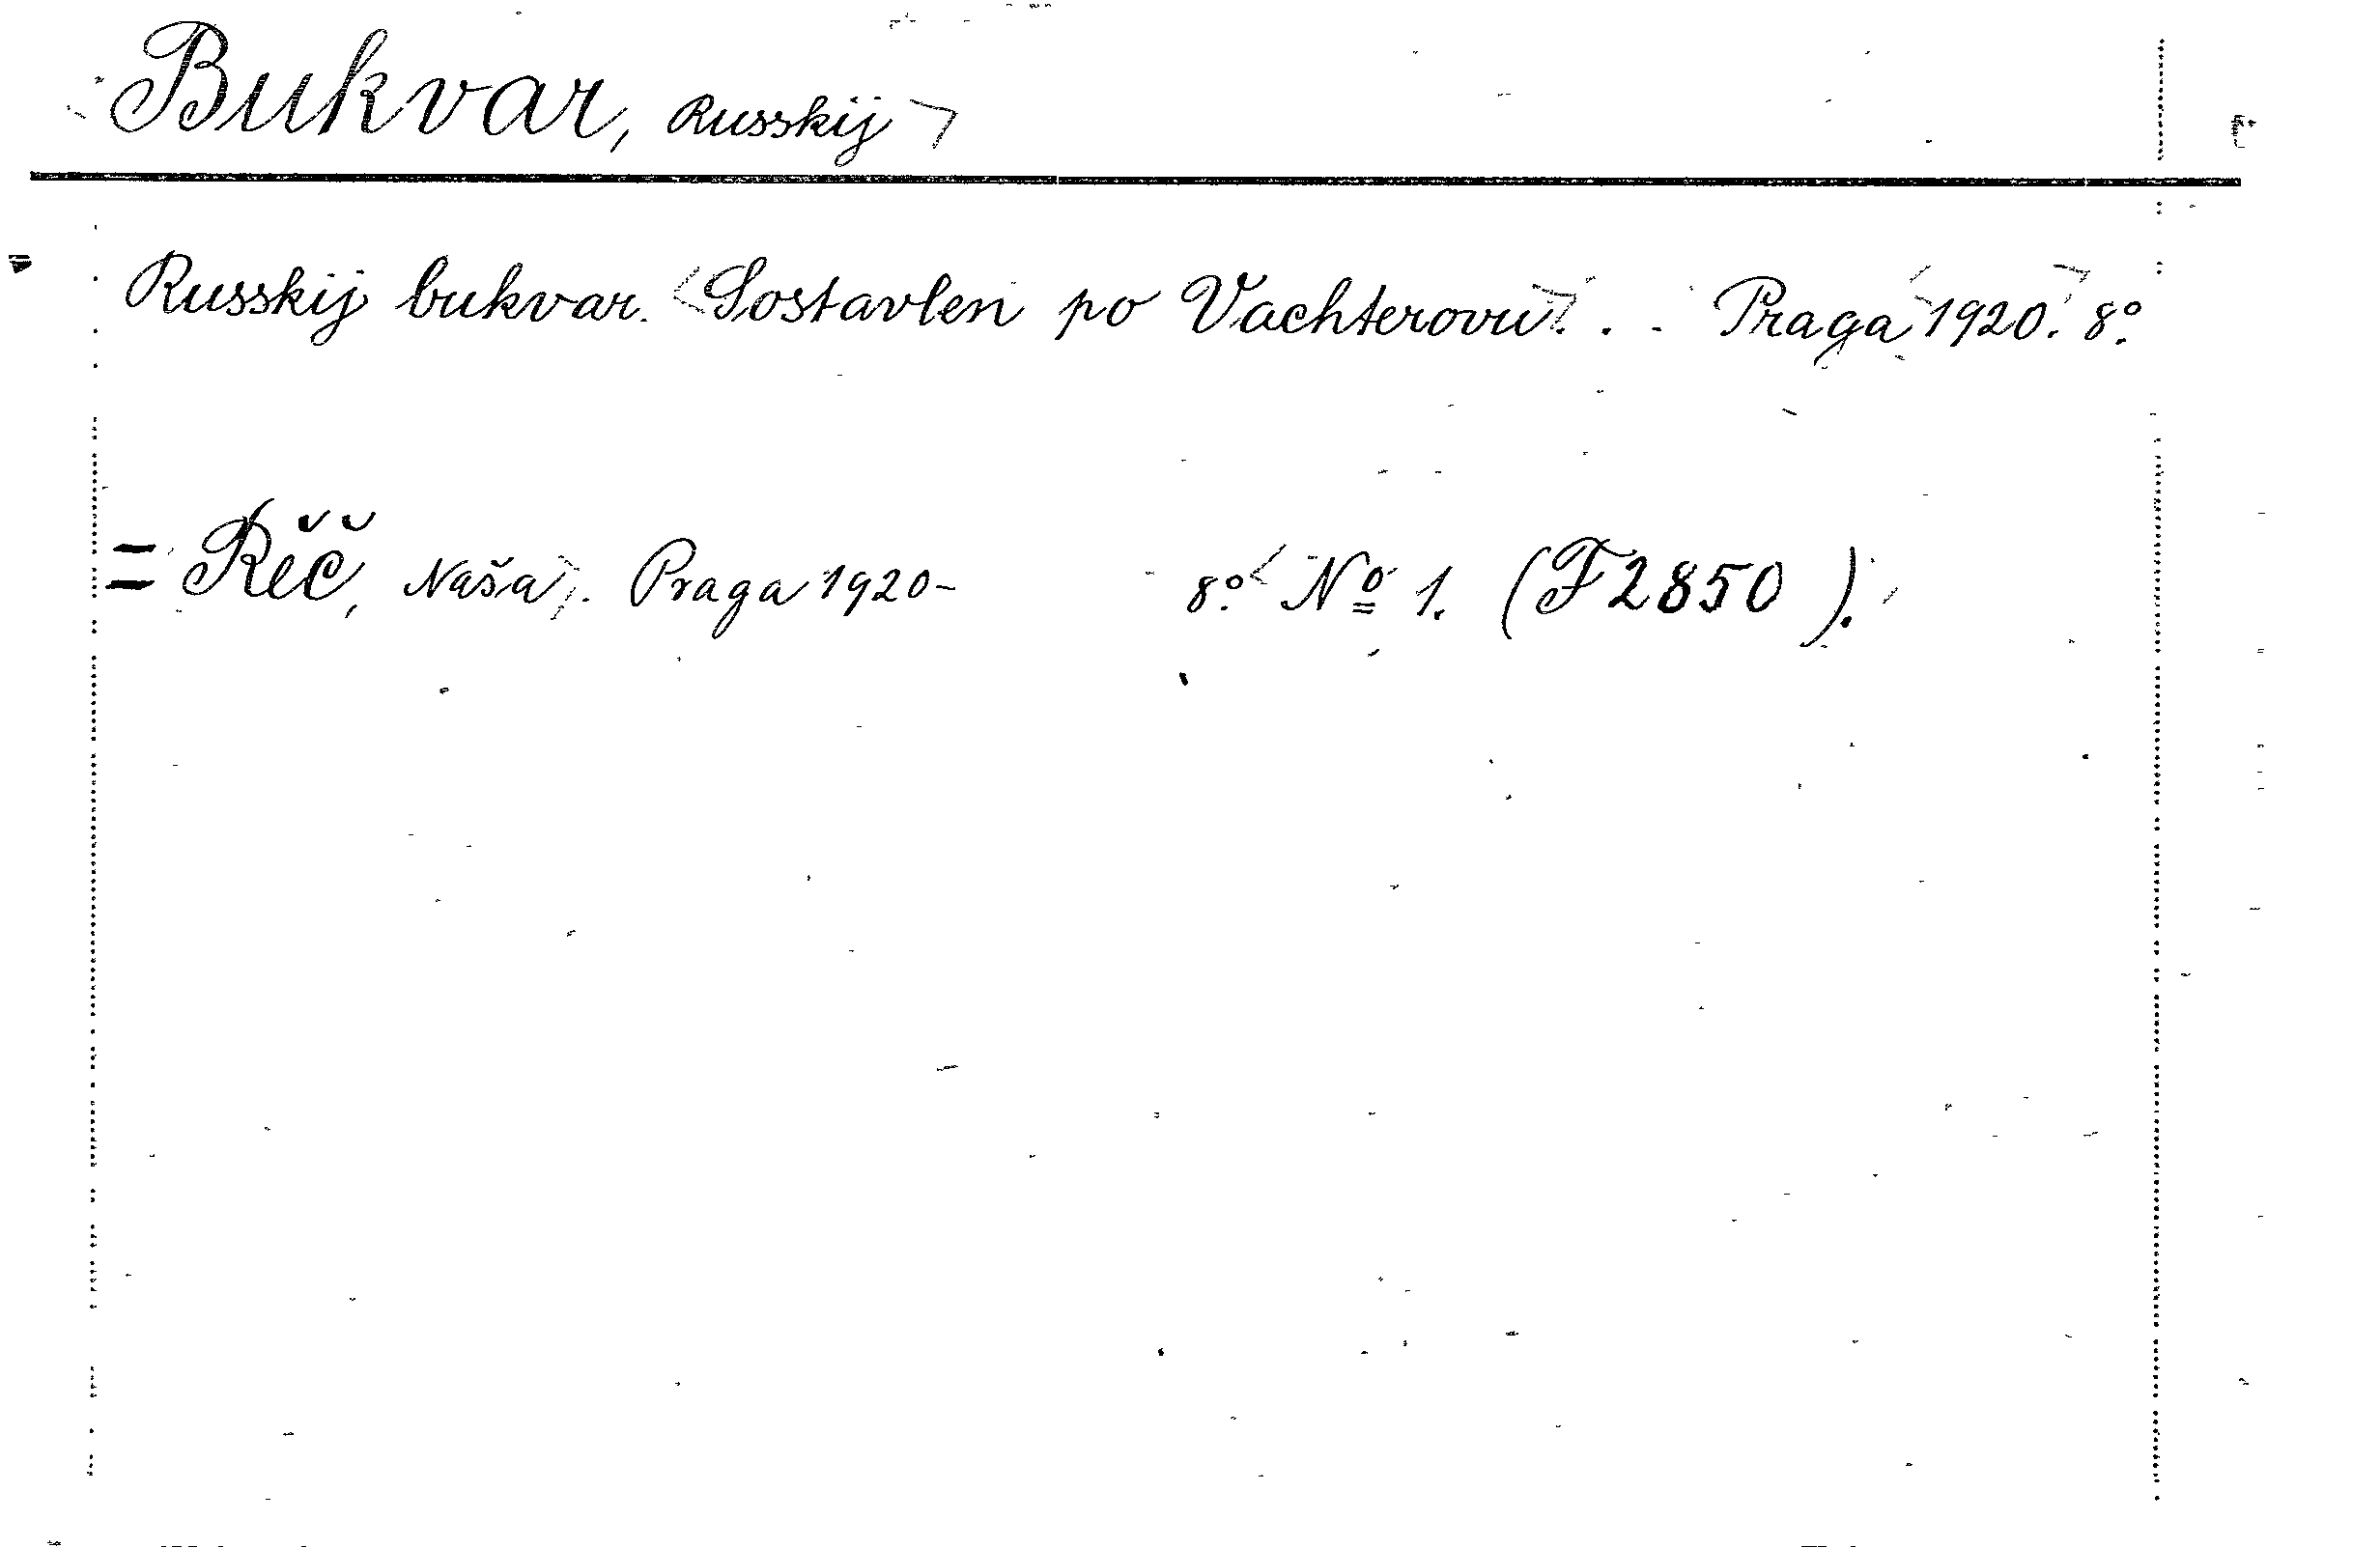 Bukvar, Russkij
Russkij bukvar. <Sostavlen po Vachterovu>. . . Praga <1920>. 8°.
= Rěč, Naša. Praga 1920- 8°. < Nº 1. (F2850).